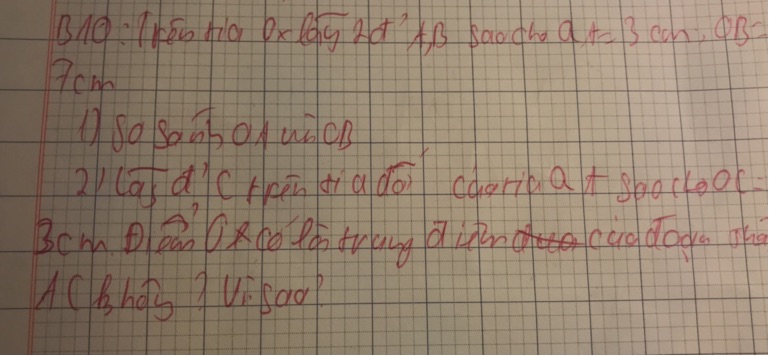 B10: Trên tia Ox lấy 2đ' A,B sao cho OA = 3 cm, OB =
7cm
1) So sánh OA với OB
2) Lấy đ' C trên tia đối của tia OA sao cho OC =
3cm. Điểm O có là trung điểm của đoạn thẳ
AC không? Vì sao?